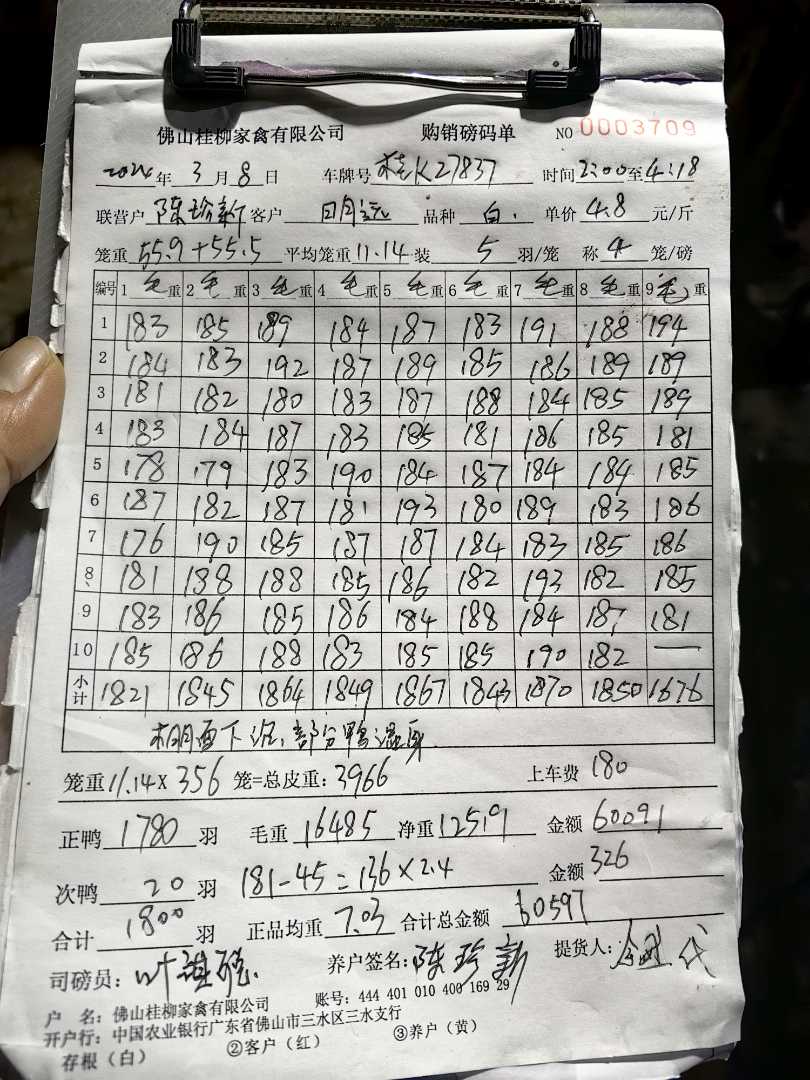 佛山桂柳家禽有限公司 购销磅码单 NO 0003709
2026年 3月 8日 车牌号 桂K27837 时间 2:00至4:18
联营户 陈珍新 客户 品种 白. 单价 4.8 元/斤
笼重 55.9+55.5 平均笼重 11.14 装 5 羽/笼 称 4 笼/磅
编号 1毛重 2毛重 3毛重 4毛重 5毛重 6毛重 7毛重 8毛重 9毛重
1 183 185 189 184 187 183 191 188 194
2 184 183 192 187 189 185 186 189 189
3 181 182 180 183 187 188 184 185 189
4 183 184 187 183 185 181 186 185 181
5 178 179 183 190 184 187 184 184 185
6 187 182 187 181 193 180 189 183 186
7 176 190 185 187 187 184 183 185 186
8 181 188 188 185 186 182 193 182 185
9 183 186 185 186 184 188 184 187 181
10 185 186 188 183 185 185 190 182 —
小计 1821 1845 1864 1849 1867 1843 1870 1850 1676
棚面下泥,部分鸭湿身.
笼重 11.14 X 356 笼=总皮重: 3966 上车费 180
正鸭 1780 羽 毛重 16485 净重 12519 金额 60091
次鸭 20 羽 181-45=136×2.4 金额 326
合计 1800 羽 正品均重 7.03 合计总金额 60597
司磅员: 养户签名: 陈珍新 提货人:
户 名: 佛山桂柳家禽有限公司 账号: 444 401 010 400 169 29
开户行: 中国农业银行广东省佛山市三水区三水支行
存根（白） ②客户（红） ③养户（黄）